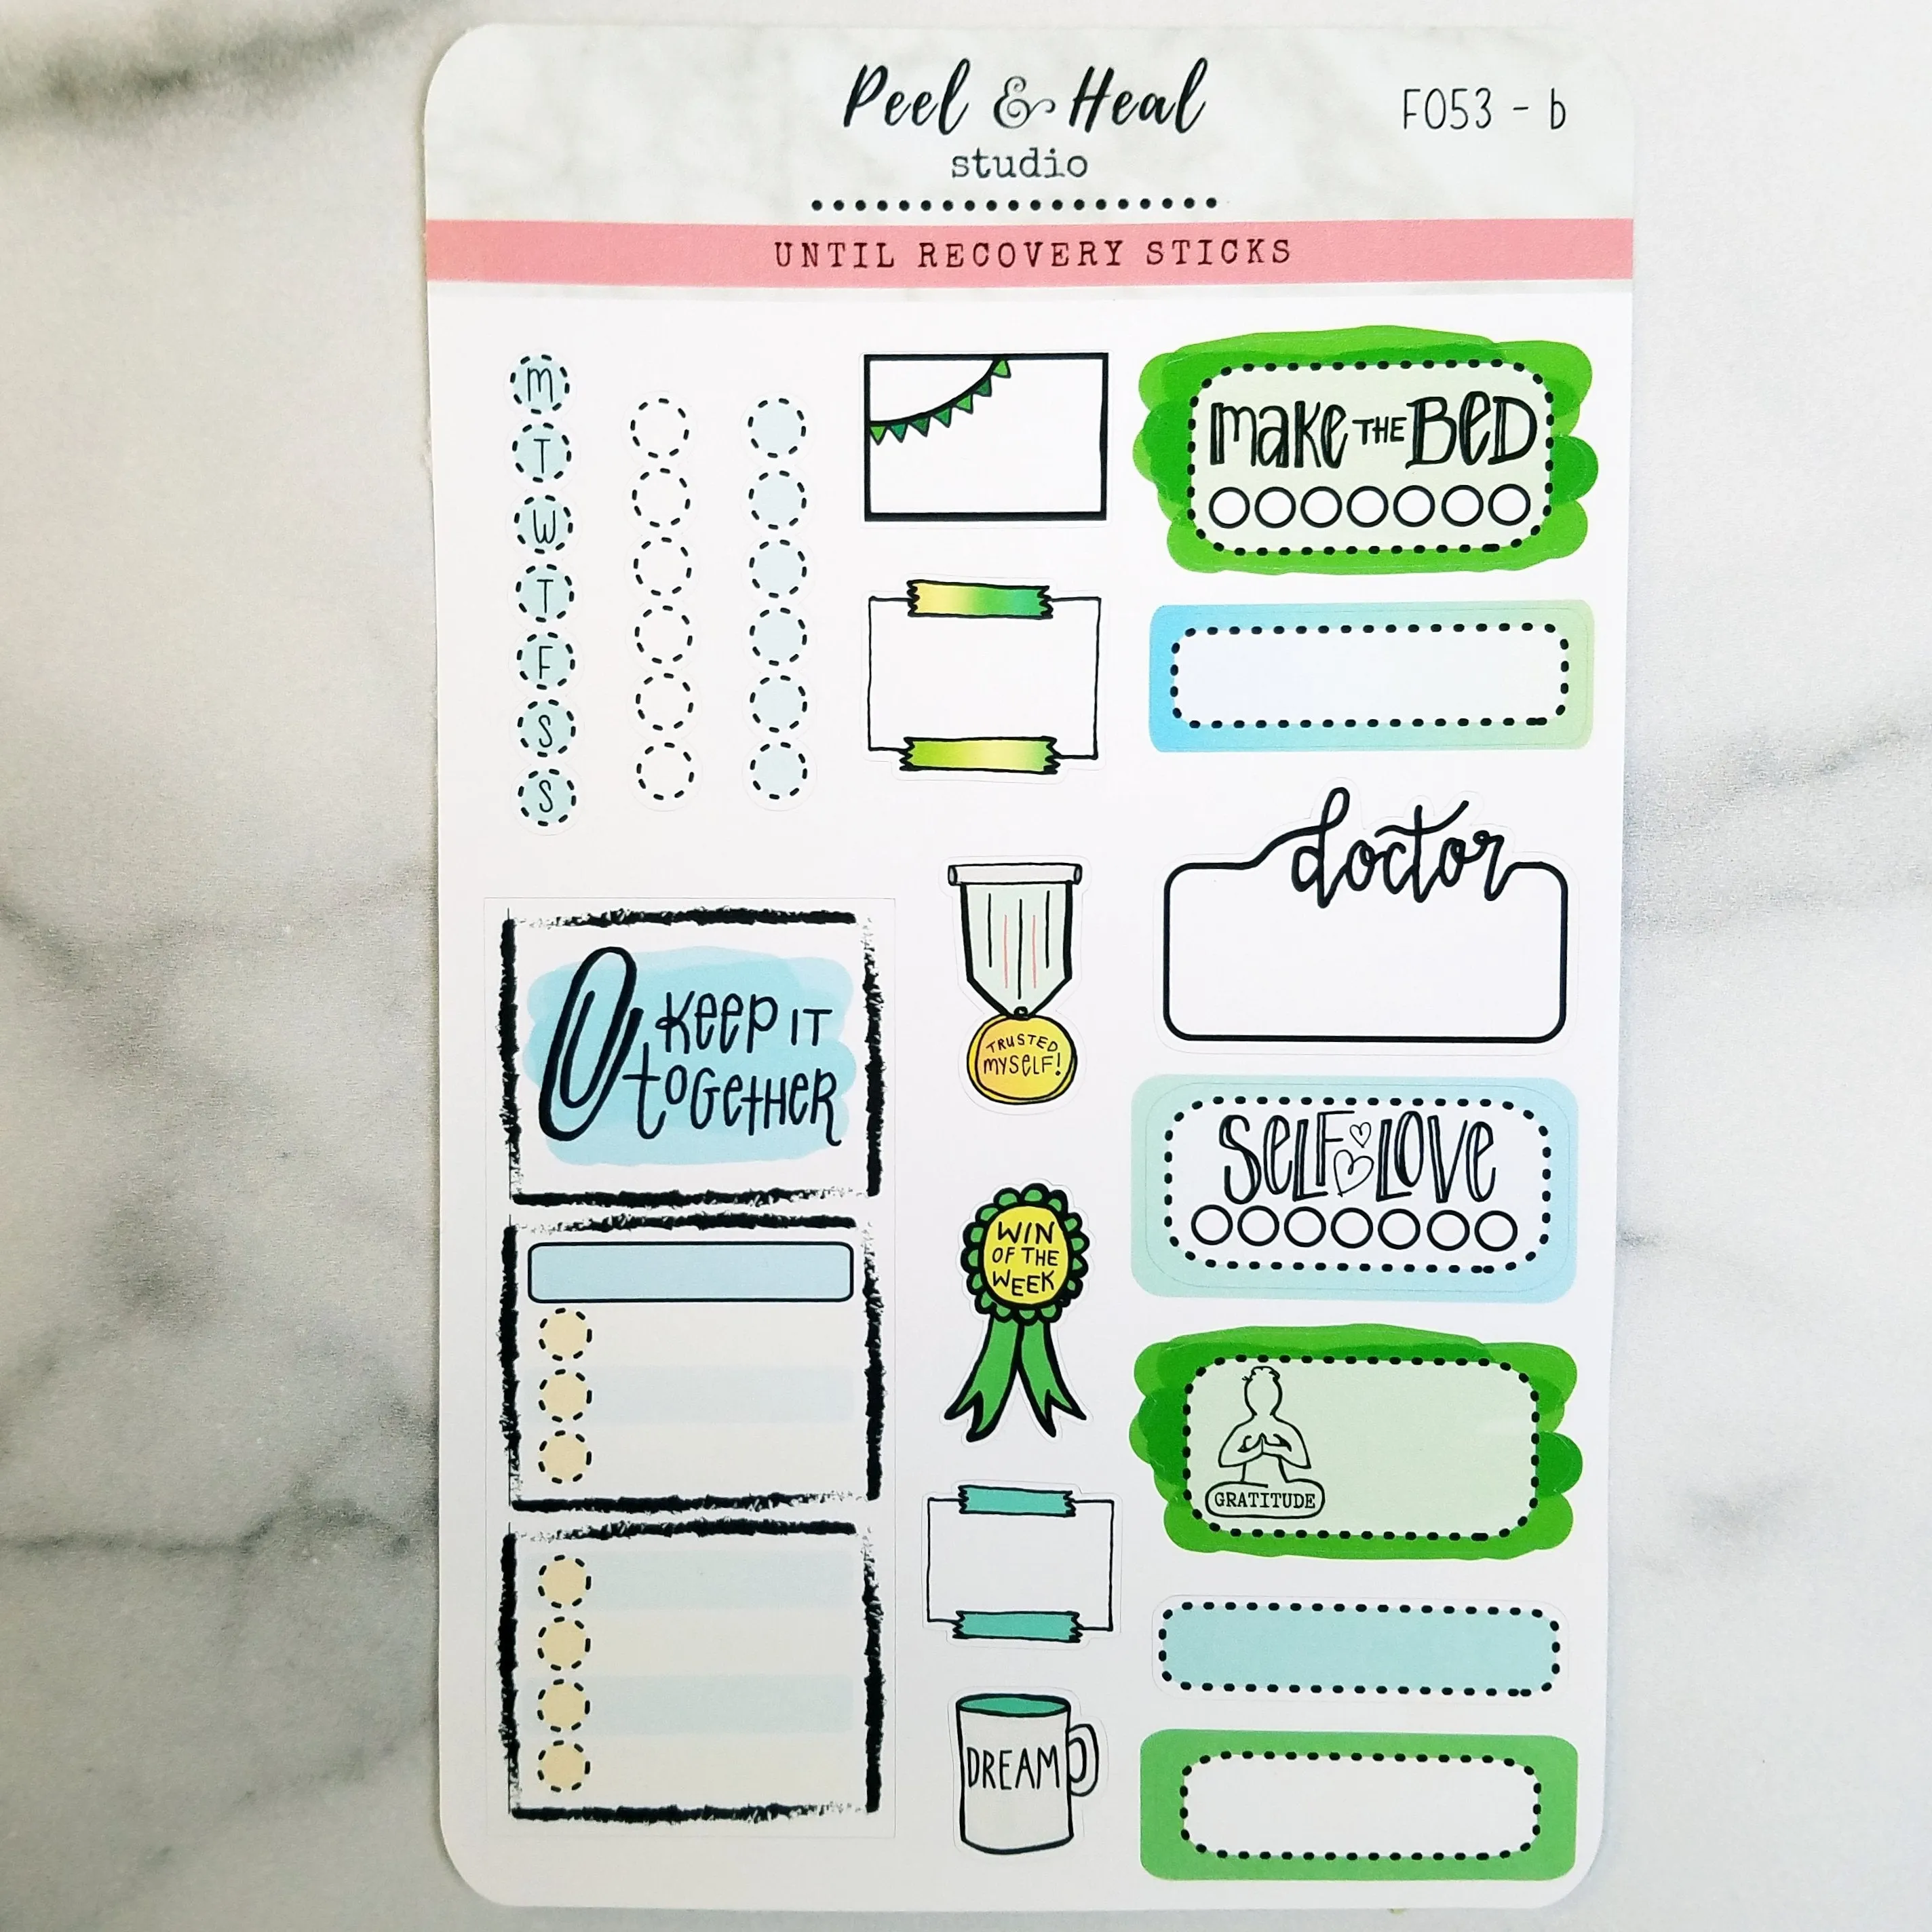 Peel & Heal
studio
F053 - b
UNTIL RECOVERY STICKS
M
T
W
T
F
S
S
KEEP IT
tOGetHER
TRUSTED
MYSELF!
WIN
OF THE
WEEK
DREAM
make THE BED
doctor
SELF LOVE
GRATITUDE